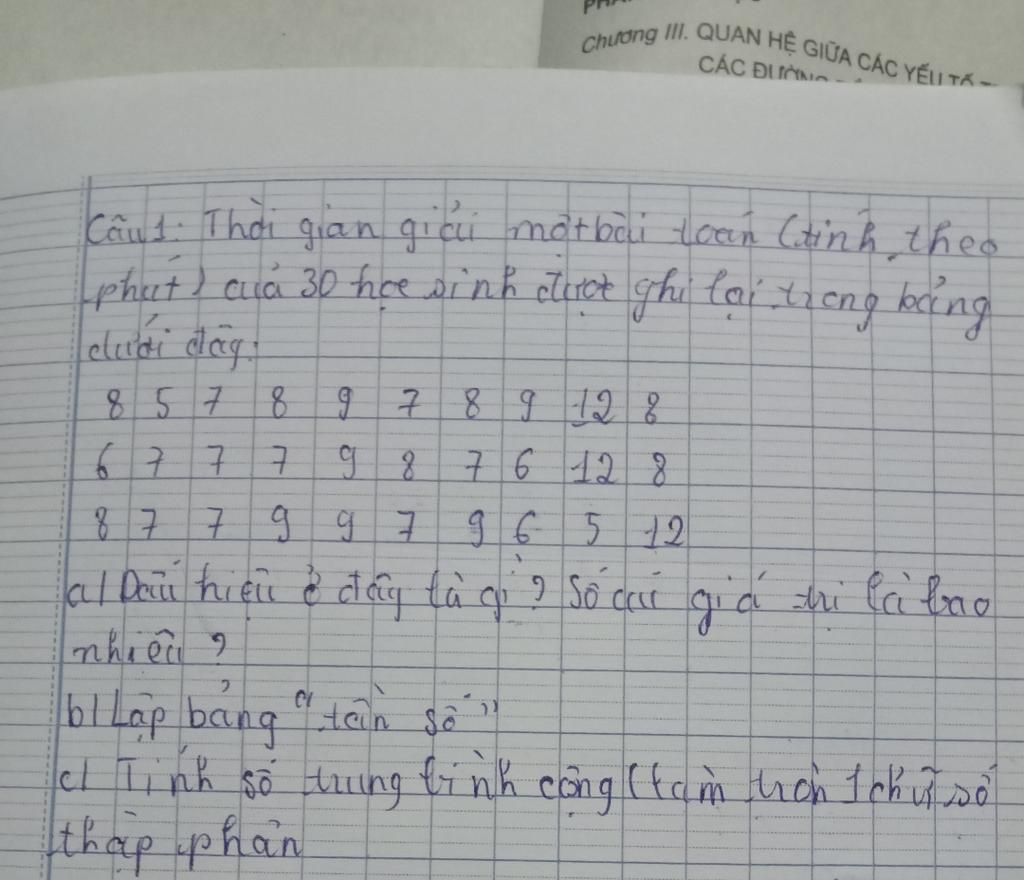 Chương III. QUAN HỆ GIỮA CÁC YẾU TỐ
CÁC ĐƯỜNG
Câu 1: Thời gian giải một bài toán (tính theo
phút) của 30 học sinh được ghi lại trong bảng
dưới đây:
8 5 7 8 9 7 8 9 12 8
6 7 7 7 9 8 7 6 12 8
8 7 7 9 9 7 9 6 5 12
a/ Dấu hiệu ở đây là gì? Số các giá trị là bao
nhiêu?
b/ Lập bảng "tần số"
c/ Tính số trung bình cộng (làm tròn 1 chữ số
thập phân